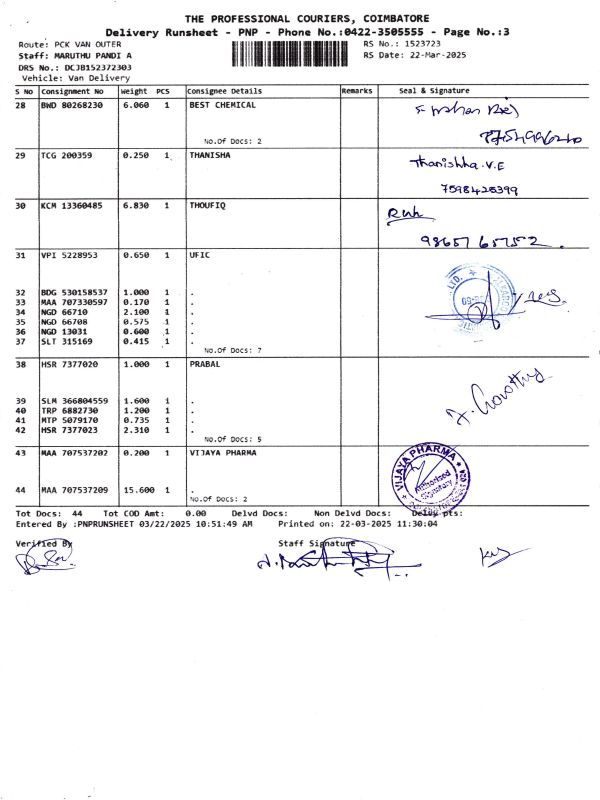 THE PROFESSIONAL COURIERS, COIMBATORE
Delivery Runsheet - PNP - Phone No.:0422-3505555 - Page No.:3
Route: PCK VAN OUTER RS No.: 1523723
Staff: MARUTHU PANDI A RS Date: 22-Mar-2025
DRS No.: DCJB152372303
Vehicle: Van Delivery
S No Consignment No Weight PCS Consignee Details Remarks Seal & Signature
28 BWD 80268230 6.060 1 BEST CHEMICAL
No.Of Docs: 2
29 TCG 200359 0.250 1 THANISHA Thanishha.V.E
7598428399
30 KCM 13360485 6.830 1 THOUFIQ
9865765752.
31 VPI 5228953 0.650 1 UFIC
32 BDG 530158537 1.000 1 .
33 MAA 707330597 0.170 1 .
34 NGD 66710 2.100 1 .
35 NGD 66708 0.575 1 .
36 NGD 13031 0.600 1 .
37 SLT 315169 0.415 1 .
No.Of Docs: 7
38 HSR 7377020 1.000 1 PRABAL
39 SLM 366804559 1.600 1 .
40 TRP 6882730 1.200 1 .
41 MTP 5079170 0.735 1 .
42 HSR 7377023 2.310 1 .
No.Of Docs: 5
43 MAA 707537202 0.200 1 VIJAYA PHARMA
VIJAYA PHARMA
Authorised
Signatory
44 MAA 707537209 15.600 1 .
No.Of Docs: 2
Tot Docs: 44 Tot COD Amt: 0.00 Delvd Docs: Non Delvd Docs: Delay pts:
Entered By :PNPRUNSHEET 03/22/2025 10:51:49 AM Printed on: 22-03-2025 11:30:04
Verified By Staff Signature